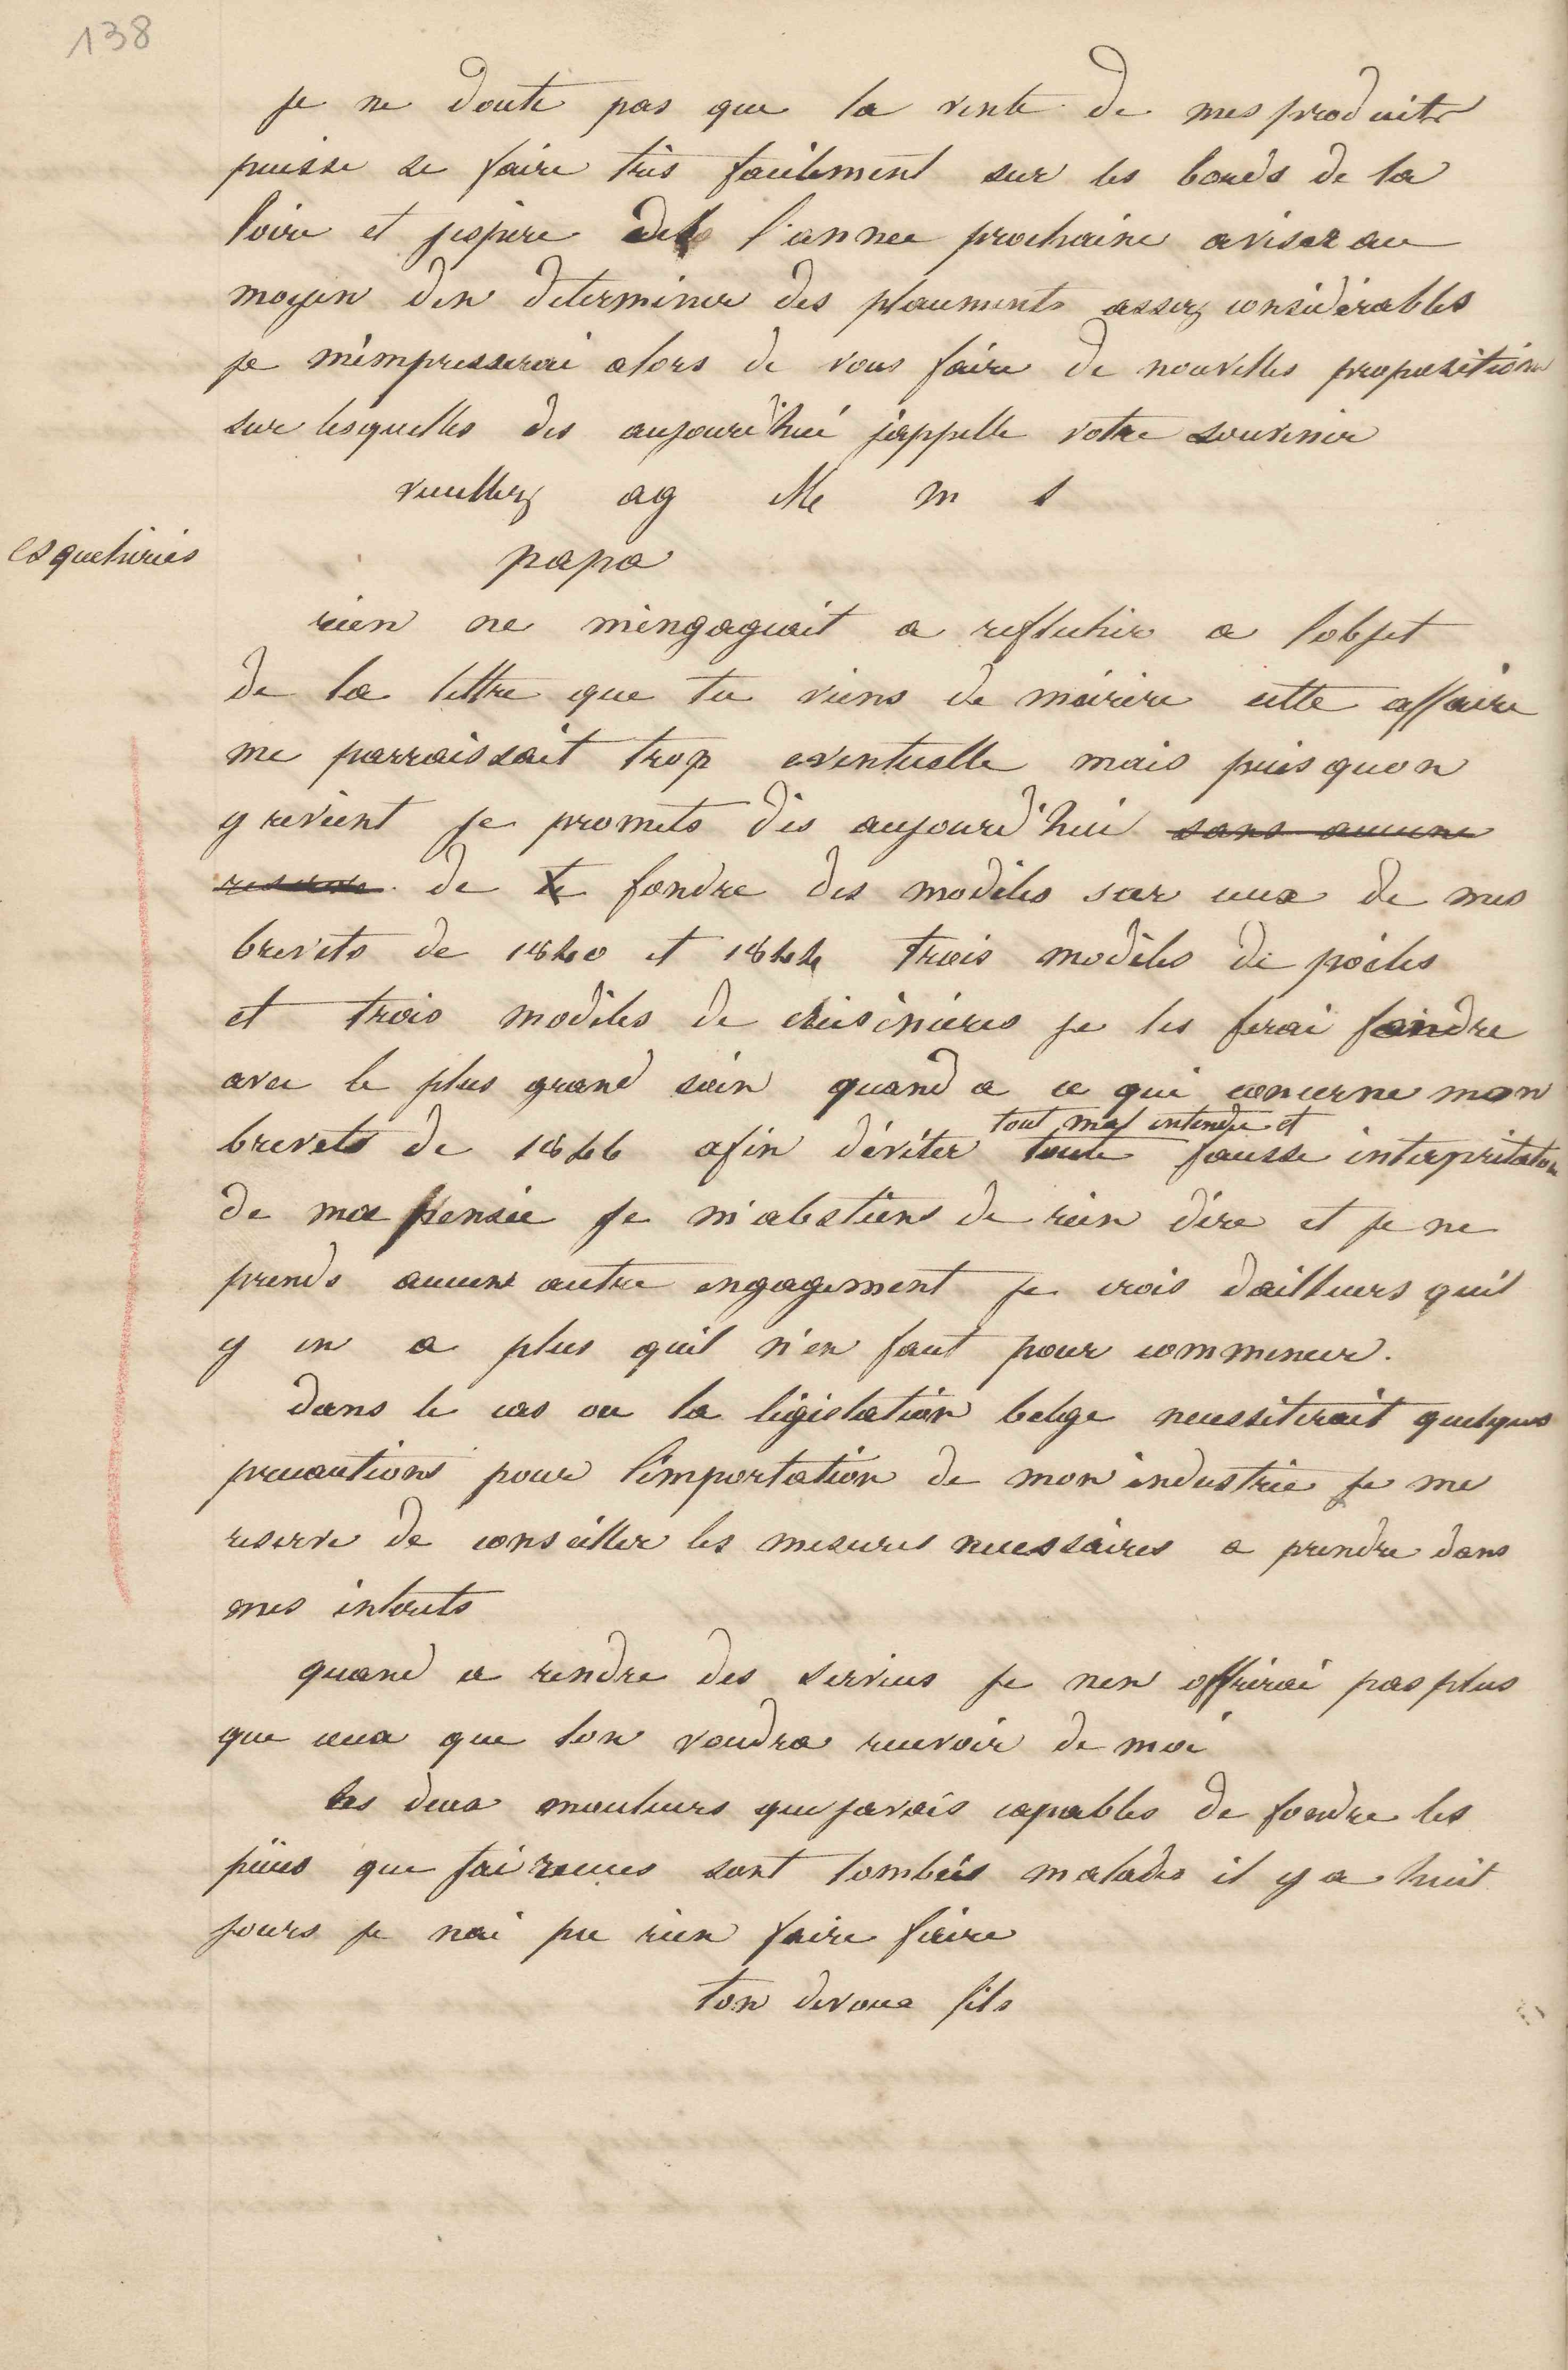 138
je ne doute pas que la vente de mes produits
puisse se faire très facilement sur les bords de la
loire et jespere des l'annee prochaine aviser au
moyen den determiner des placements assez considérables
je m'empresserai alors de vous faire de nouvelles propositions
sur lesquelles des aujourd'hui j'appelle votre souvenir
veuillez ag Me m s
esqueheries
papa
rien ne m'engageait a reflechir a lobjet
de la lettre que tu viens de mécrire cette affaire
me parraissait trop eventuelle mais puis quon
y revient je promets dès aujourd'hui sans aucune
reserve de te fondre des modèles sur ceux de mes
brevets de 1840 et 1844 trois modèles de poêles
et trois modèles de cuisinieres je les ferai fondre
avec le plus grand soin quand a ce qui concerne mon
tout mal entendu et
brevets de 1846 afin d'éviter toute fausse interprétation
de ma pensée je m'abstiens de rien dire et je ne
prends aucun autre engagement je crois dailleurs quil
y en a plus quil n'en faut pour commencer.
dans le cas ou la législation belge necessiterait quelques
precautions pour l'importation de mon industrie je me
reserve de conseiller les mesures necessaires a prendre dans
mes interets
quand a rendre des services je nen offrirai pas plus
que ceux que lon voudra recevoir de moi
les deux mouleurs que javais capables de fondre les
pièces que jai recues sont tombés malades il y a huit
jours je nai pu rien faire faire
ton devoue fils